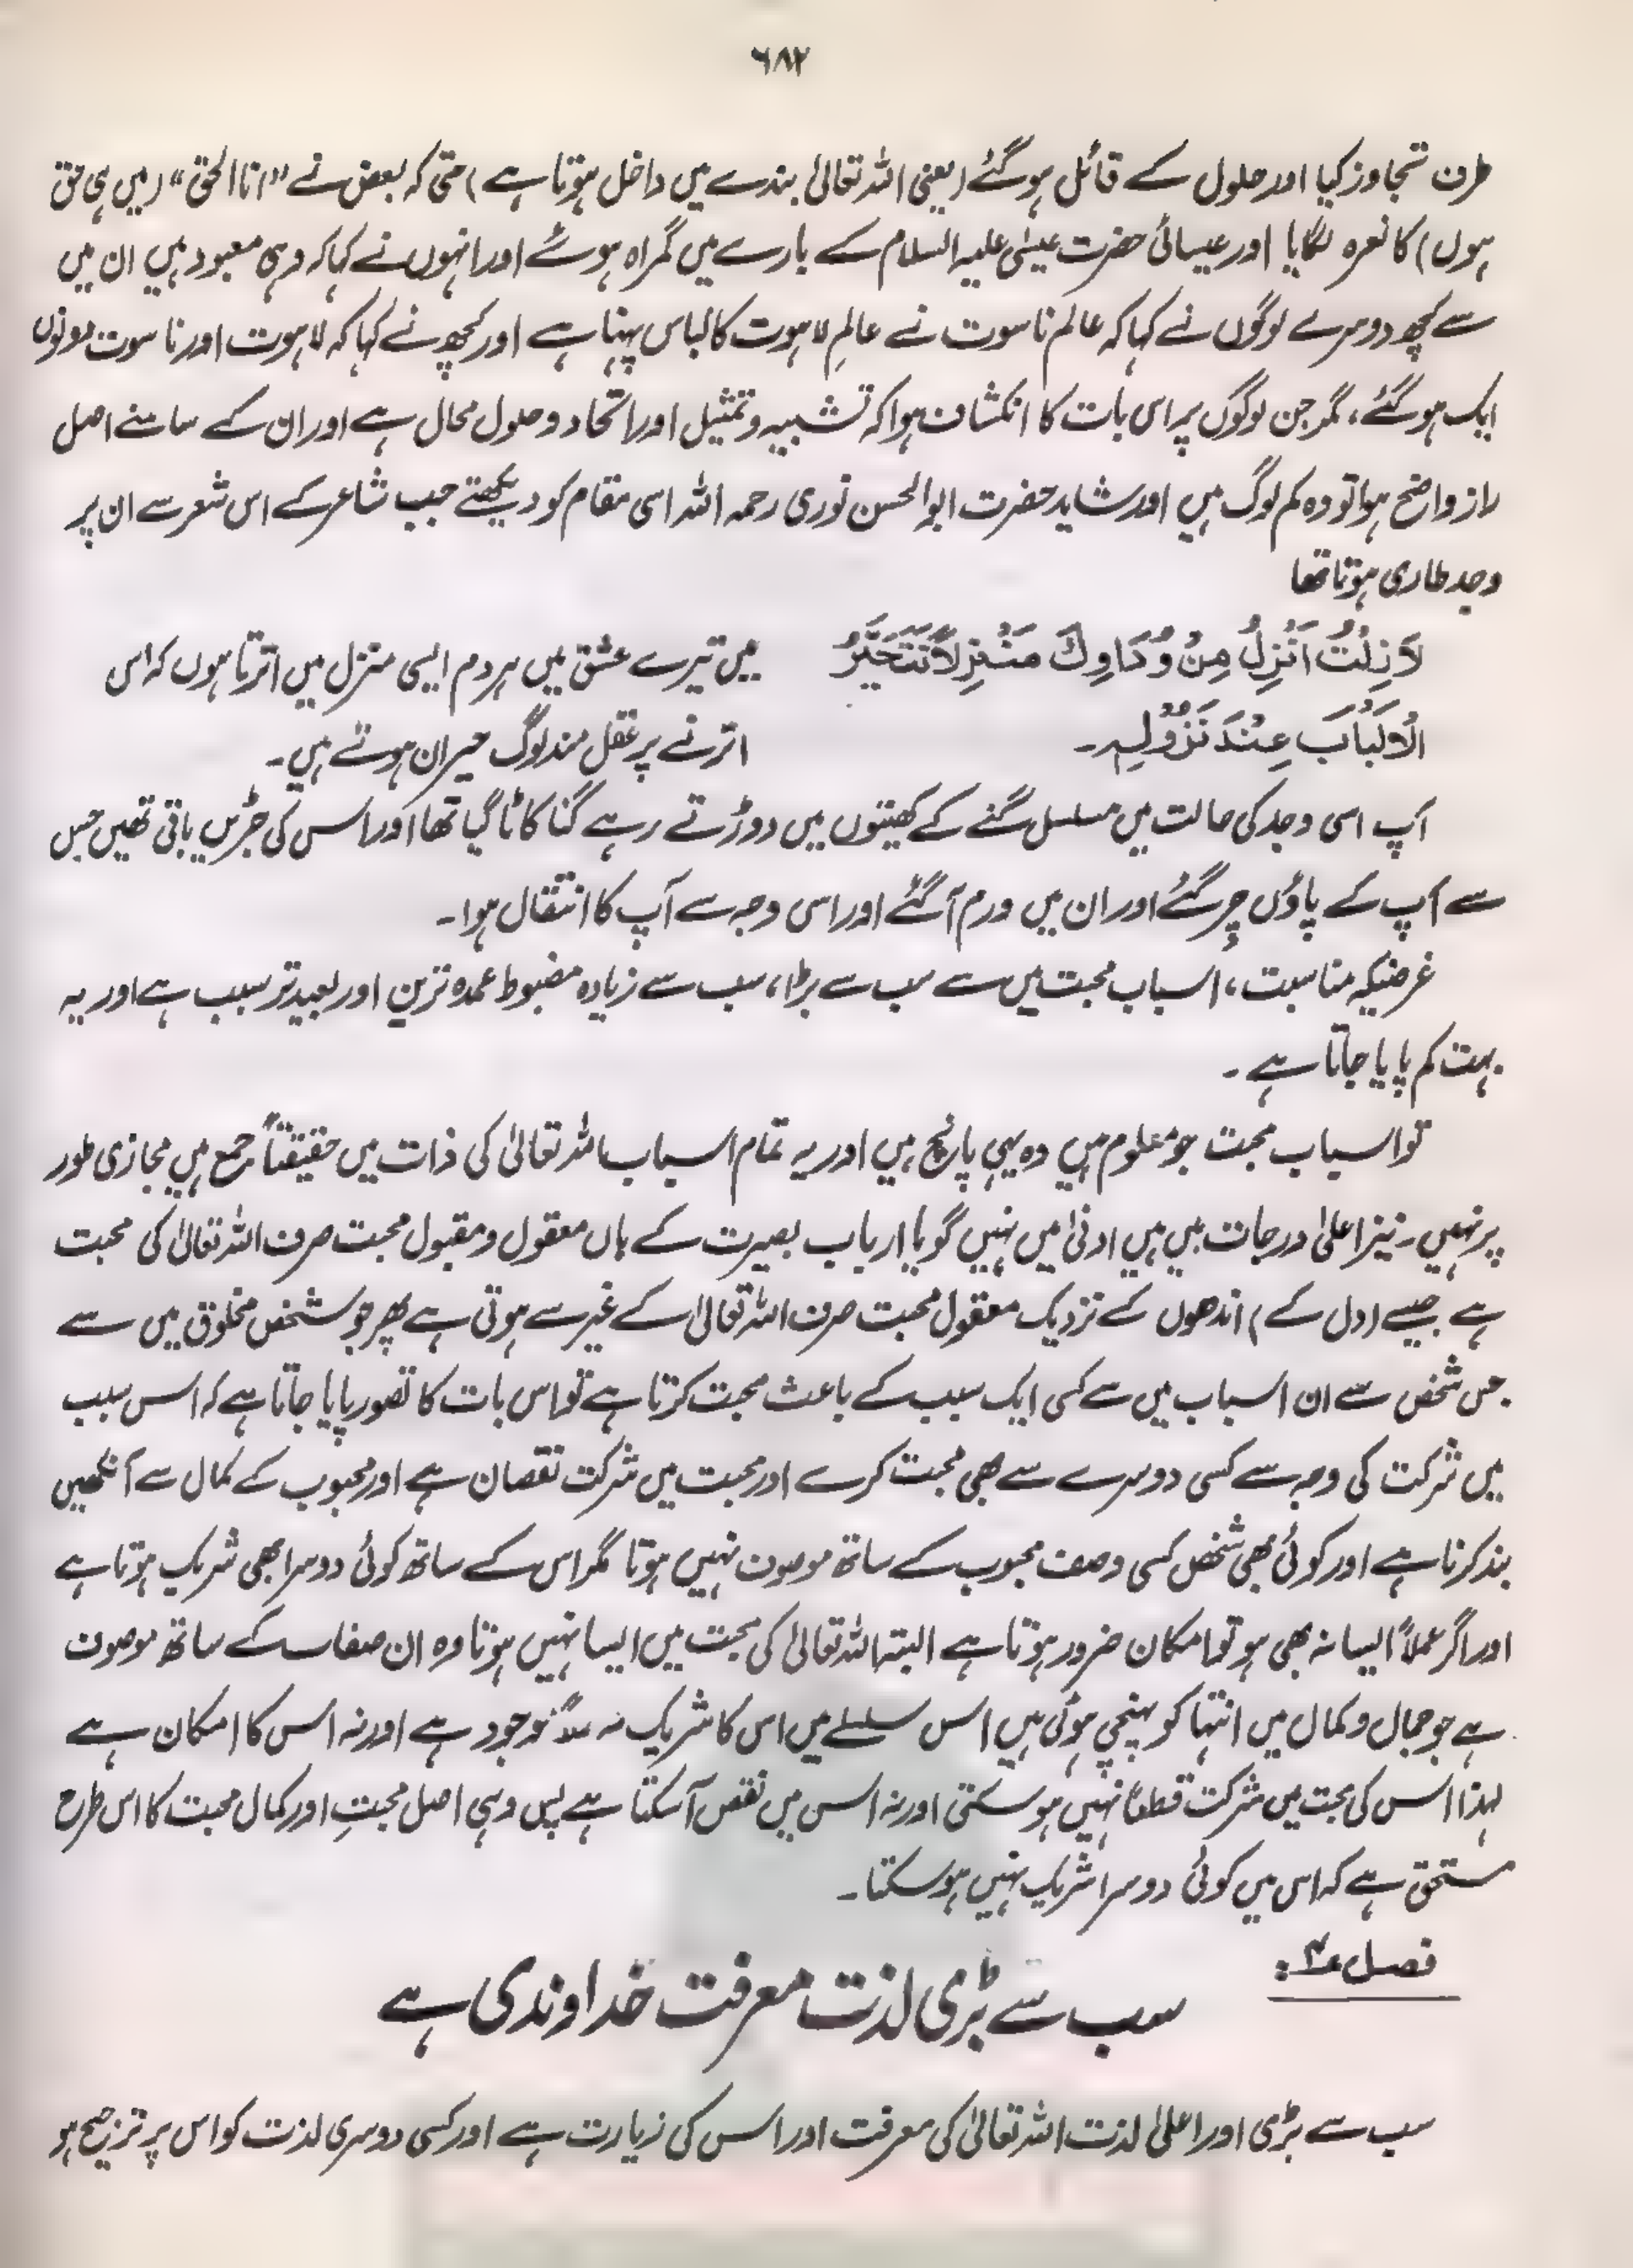 ٦٨٢
طرف تجاوز کیا اور حلول کے قائل ہو گئے (یعنی اللہ تعالیٰ بندے میں داخل ہوتا ہے) حتیٰ کہ بعض نے "انا الحق" (میں ہی حق
ہوں) کا نعرہ لگایا اور عیسائی حضرت عیسیٰ علیہ السلام کے بارے میں گمراہ ہوئے اور انہوں نے کہا کہ وہی معبود ہیں ان میں
سے کچھ دوسرے لوگوں نے کہا کہ عالم ناسوت نے عالمِ لاہوت کا لباس پہنا ہے اور کچھ نے کہا کہ لاہوت اور ناسوت دونوں
ایک ہو گئے، مگر جن لوگوں پر اس بات کا انکشاف ہوا کہ تشبیہ و تمثیل اور اتحاد و حلول محال ہے اور ان کے سامنے اصل
راز واضح ہوا تو وہ کم لوگ ہیں اور شاید حضرت ابوالحسن نوری رحمہ اللہ اسی مقام کو دیکھتے جب شاعر کے اس شعر سے ان پر
وجد طاری ہوتا تھا
لَا زِلْتُ اَنْزِلُ مِنْ وُدَادِكَ مَنْزِلًا تَتَحَيَّرُ
الْاَلْبَابَ عِنْدَ نَزُوْلِهٖ۔
میں تیرے عشق میں ہر دم ایسی منزل میں اترتا ہوں کہ اس
اترنے پر عقل مند لوگ حیران ہوتے ہیں۔
آپ اسی وجد کی حالت میں مسلسل گنے کے کھیتوں میں دوڑتے رہے گنا کاٹا گیا تھا اور اس کی جڑیں باقی تھیں جس
سے آپ کے پاؤں چِر گئے اور ان میں ورم آگئے اور اسی وجہ سے آپ کا انتقال ہوا۔
غرضیکہ مناسبت، اسباب محبت میں سے سب سے بڑا، سب سے زیادہ مضبوط عمدہ ترین اور بعید تر سبب ہے اور یہ
بہت کم پایا جاتا ہے۔
تو اسباب محبت جو معلوم ہیں وہ یہی پانچ ہیں اور یہ تمام اسباب اللہ تعالیٰ کی ذات میں حقیقتاً جمع ہیں مجازی طور
پر نہیں۔ نیز اعلیٰ درجات میں ہیں ادنیٰ میں نہیں گویا ارباب بصیرت کے ہاں معقول و مقبول محبت صرف اللہ تعالیٰ کی محبت
ہے جیسے (دل کے) اندھوں کے نزدیک معقول محبت صرف اللہ تعالیٰ کے غیر سے ہوتی ہے پھر جو شخص مخلوق میں سے
جس شخص سے ان اسباب میں سے کسی ایک سبب کے باعث محبت کرتا ہے تو اس بات کا تصور پایا جاتا ہے کہ اس سبب
میں شرکت کی وجہ سے کسی دوسرے سے بھی محبت کرے اور محبت میں شرکت نقصان ہے اور محبوب کے کمال سے آنکھیں
بند کرنا ہے اور کوئی بھی شخص کسی وصف محبوب کے ساتھ موصوف نہیں ہوتا مگر اس کے ساتھ کوئی دوسرا بھی شریک ہوتا ہے
اور اگر عملاً ایسا نہ بھی ہو تو امکان ضرور ہوتا ہے البتہ اللہ تعالیٰ کی محبت میں ایسا نہیں ہوتا وہ ان صفات کے ساتھ موصوف
ہے جو جمال و کمال میں انتہا کو پہنچی ہوئی ہیں اس سلسلے میں اس کا شریک نہ عملاً موجود ہے اور نہ اس کا امکان ہے
لہذا اس کی محبت میں شرکت قطعاً نہیں ہو سکتی اور نہ اس میں نقص آسکتا ہے پس وہی اصل محبتِ اور کمال محبت کا اس طرح
مستحق ہے کہ اس میں کوئی دوسرا شریک نہیں ہو سکتا۔
فصل ۴:
سب سے بڑی لذت معرفت خداوندی ہے
سب سے بڑی اور اعلیٰ لذت اللہ تعالیٰ کی معرفت اور اس کی زیارت ہے اور کسی دوسری لذت کو اس پر ترجیح ہو